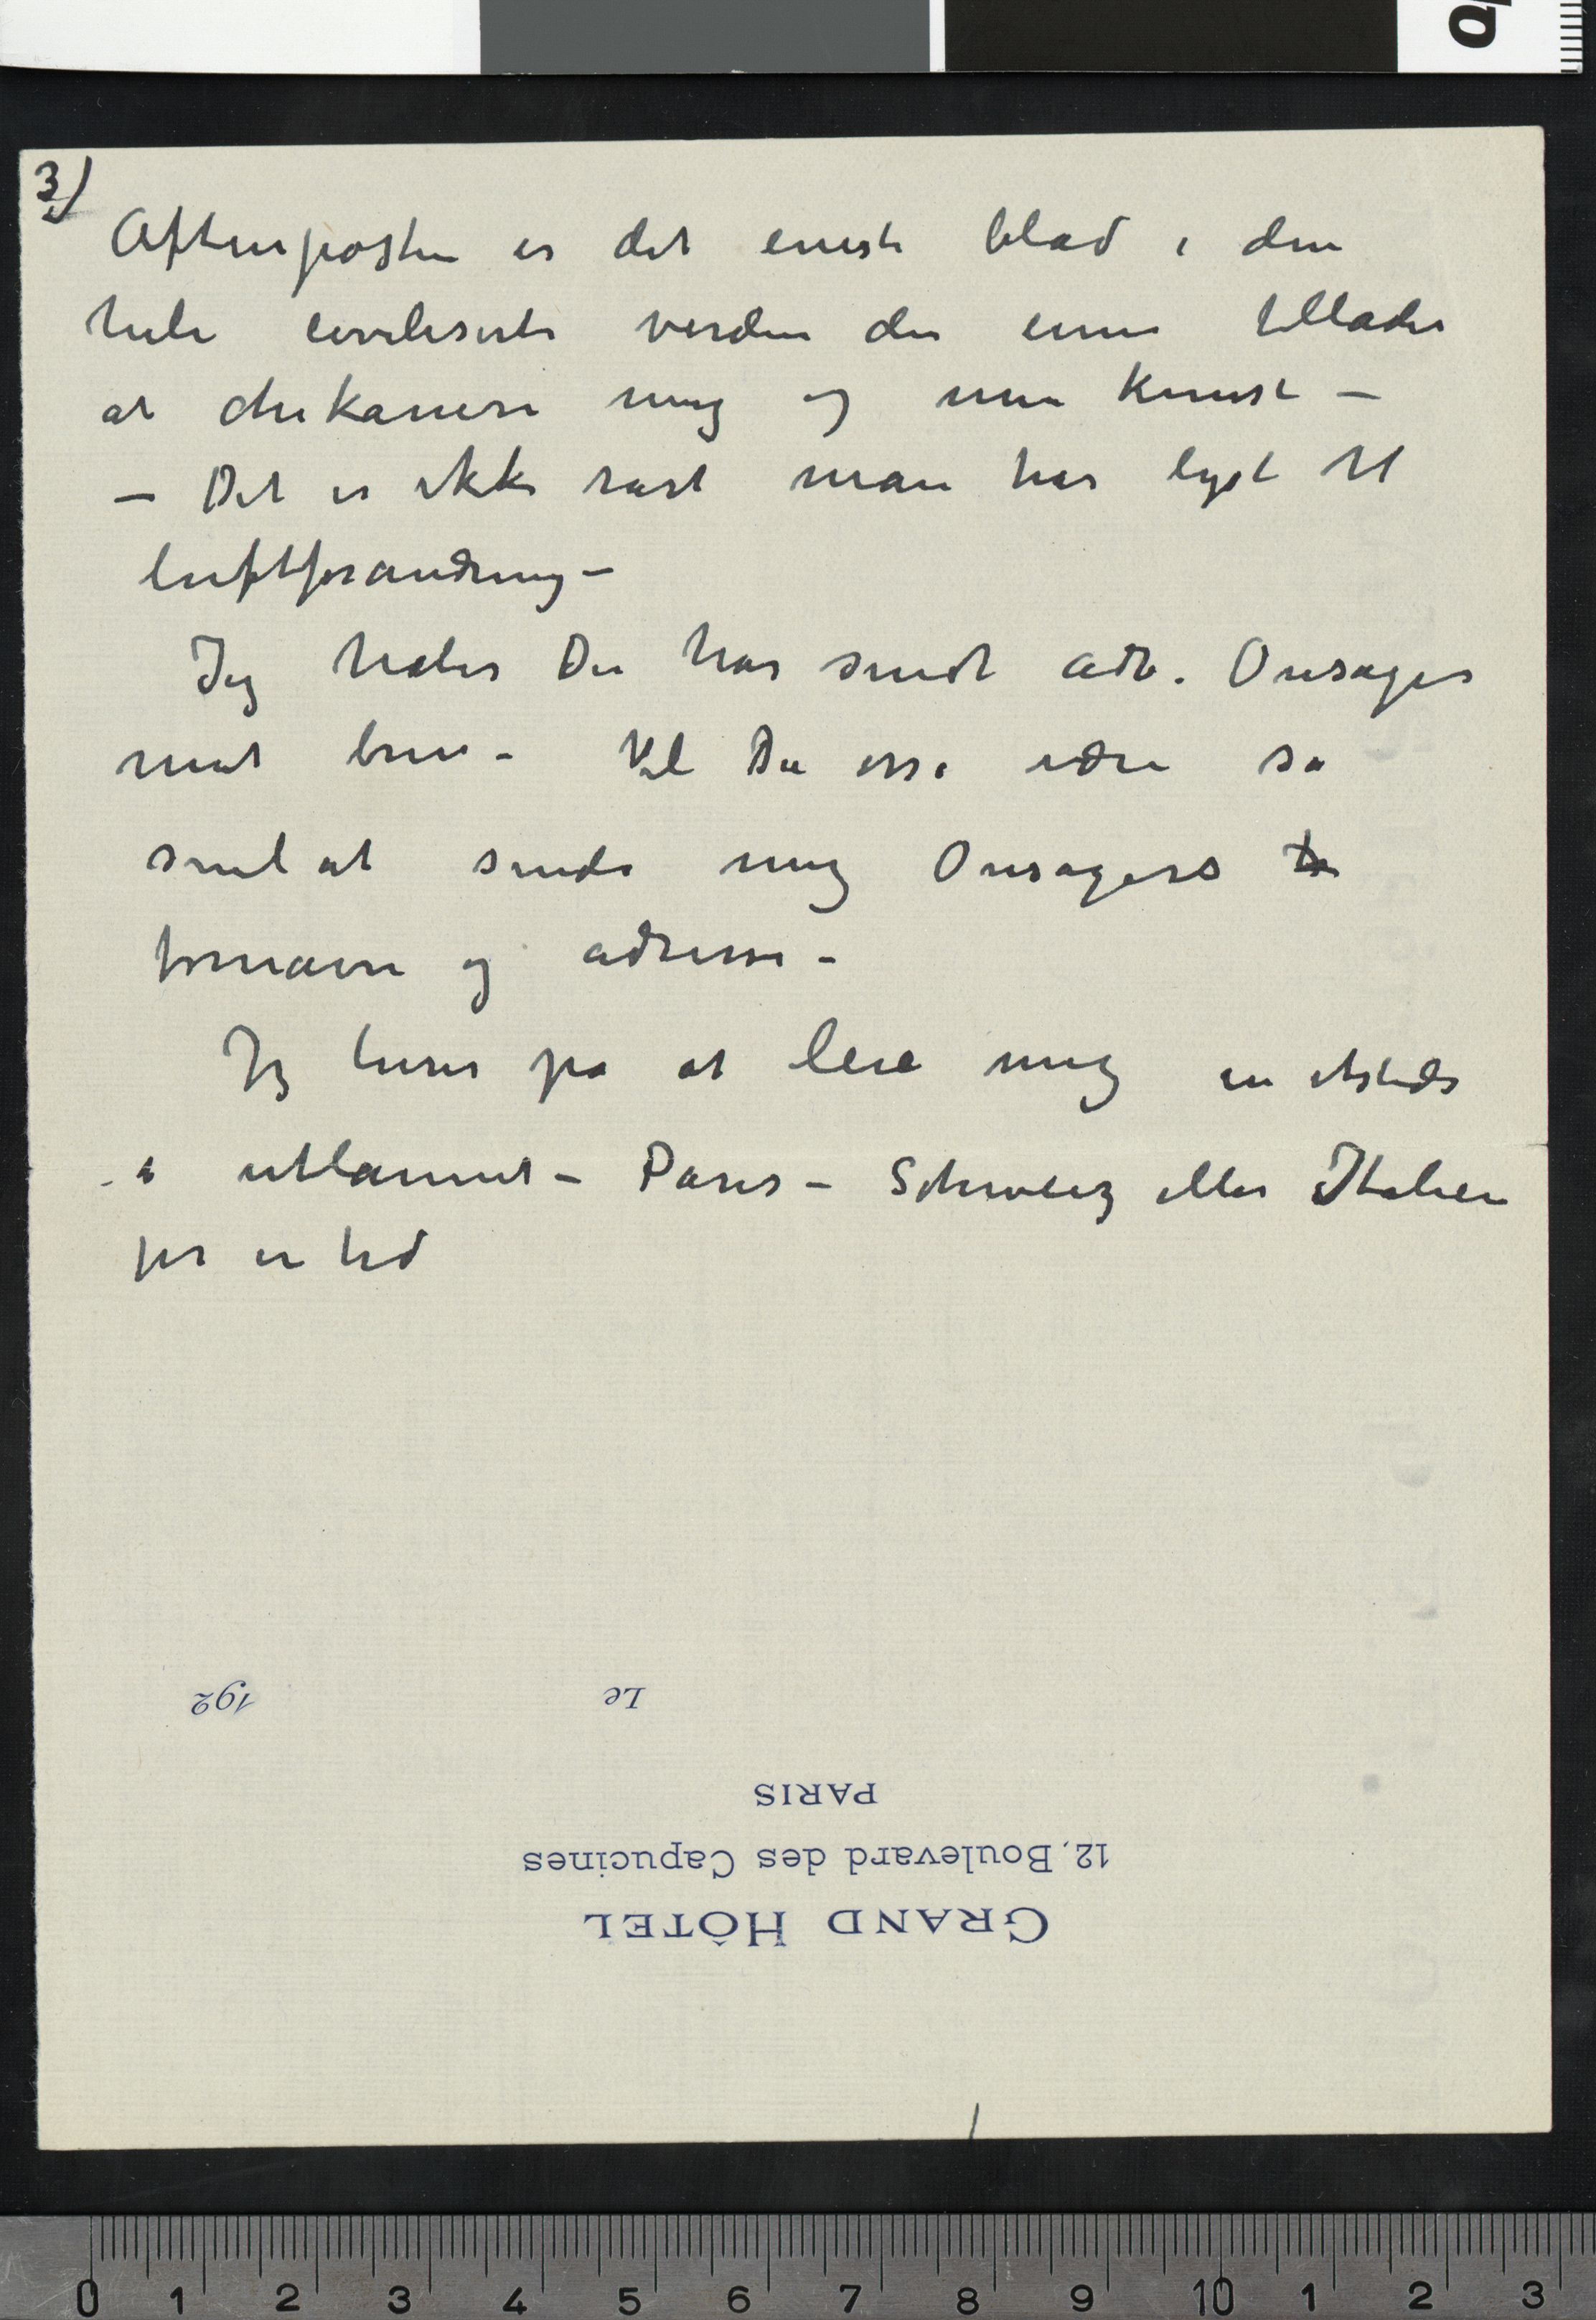 3)
Aftenposten er det eneste blad i den
hele civiliserte verden der ennu tillader
at chikanere mig og min kunst –
– Det er ikke rart man har lyst til
luftforandring –
Jeg haaber Du har sendt adv. Onsager
mit brev – Vil Du også være så
snil at sende mig Onsagers
fornavn og adresse –
Jeg lurer på at leie mig in etsteds
i utlannet – Paris – Schweiz eller Italien
for en tid
Le 192
PARIS
12, Boulevard des Capucines
GRAND HÔTEL
0 1 2 3 4 5 6 7 8 9 10 1 2 3